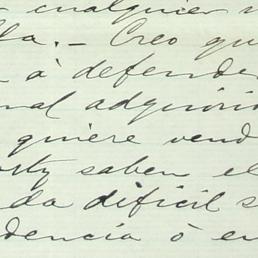 cualquier
lla. - Creo qu
à defende
nal adquirio
quiere vend
orty saben el
da dificil s
dencia ó en